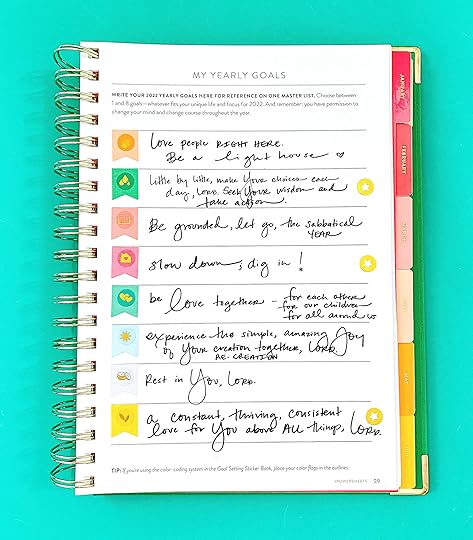 MY YEARLY GOALS
WRITE YOUR 2022 YEARLY GOALS HERE FOR REFERENCE ON ONE MASTER LIST. Choose between
1 and 8 goals—whatever fits your unique life and focus for 2022. And remember: you have permission to
change your mind and change course throughout the year.
Love people RIGHT HERE.
Be a light house
little by little, make Your choices each
day, LORD. Seek Your wisdom and
take action.
Be grounded, let go, the sabbatical
YEAR
slow down, dig in!
be love together - for each other
for our children
for all around us
experience the simple, amazing Joy
of Your creation together, LORD.
RE-CREATION
Rest in You, LORD.
a constant, thriving, consistent
love for You above ALL things, LORD.
TIP: If you're using the color-coding system in the Goal Setting Sticker Book, place your color flags in the outlines.
POWERSHEETS 29
JANUARY
FEBRUARY
MAY